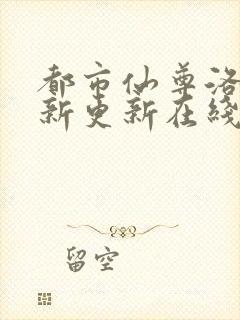 都市仙尊洛
新更新在线
留空